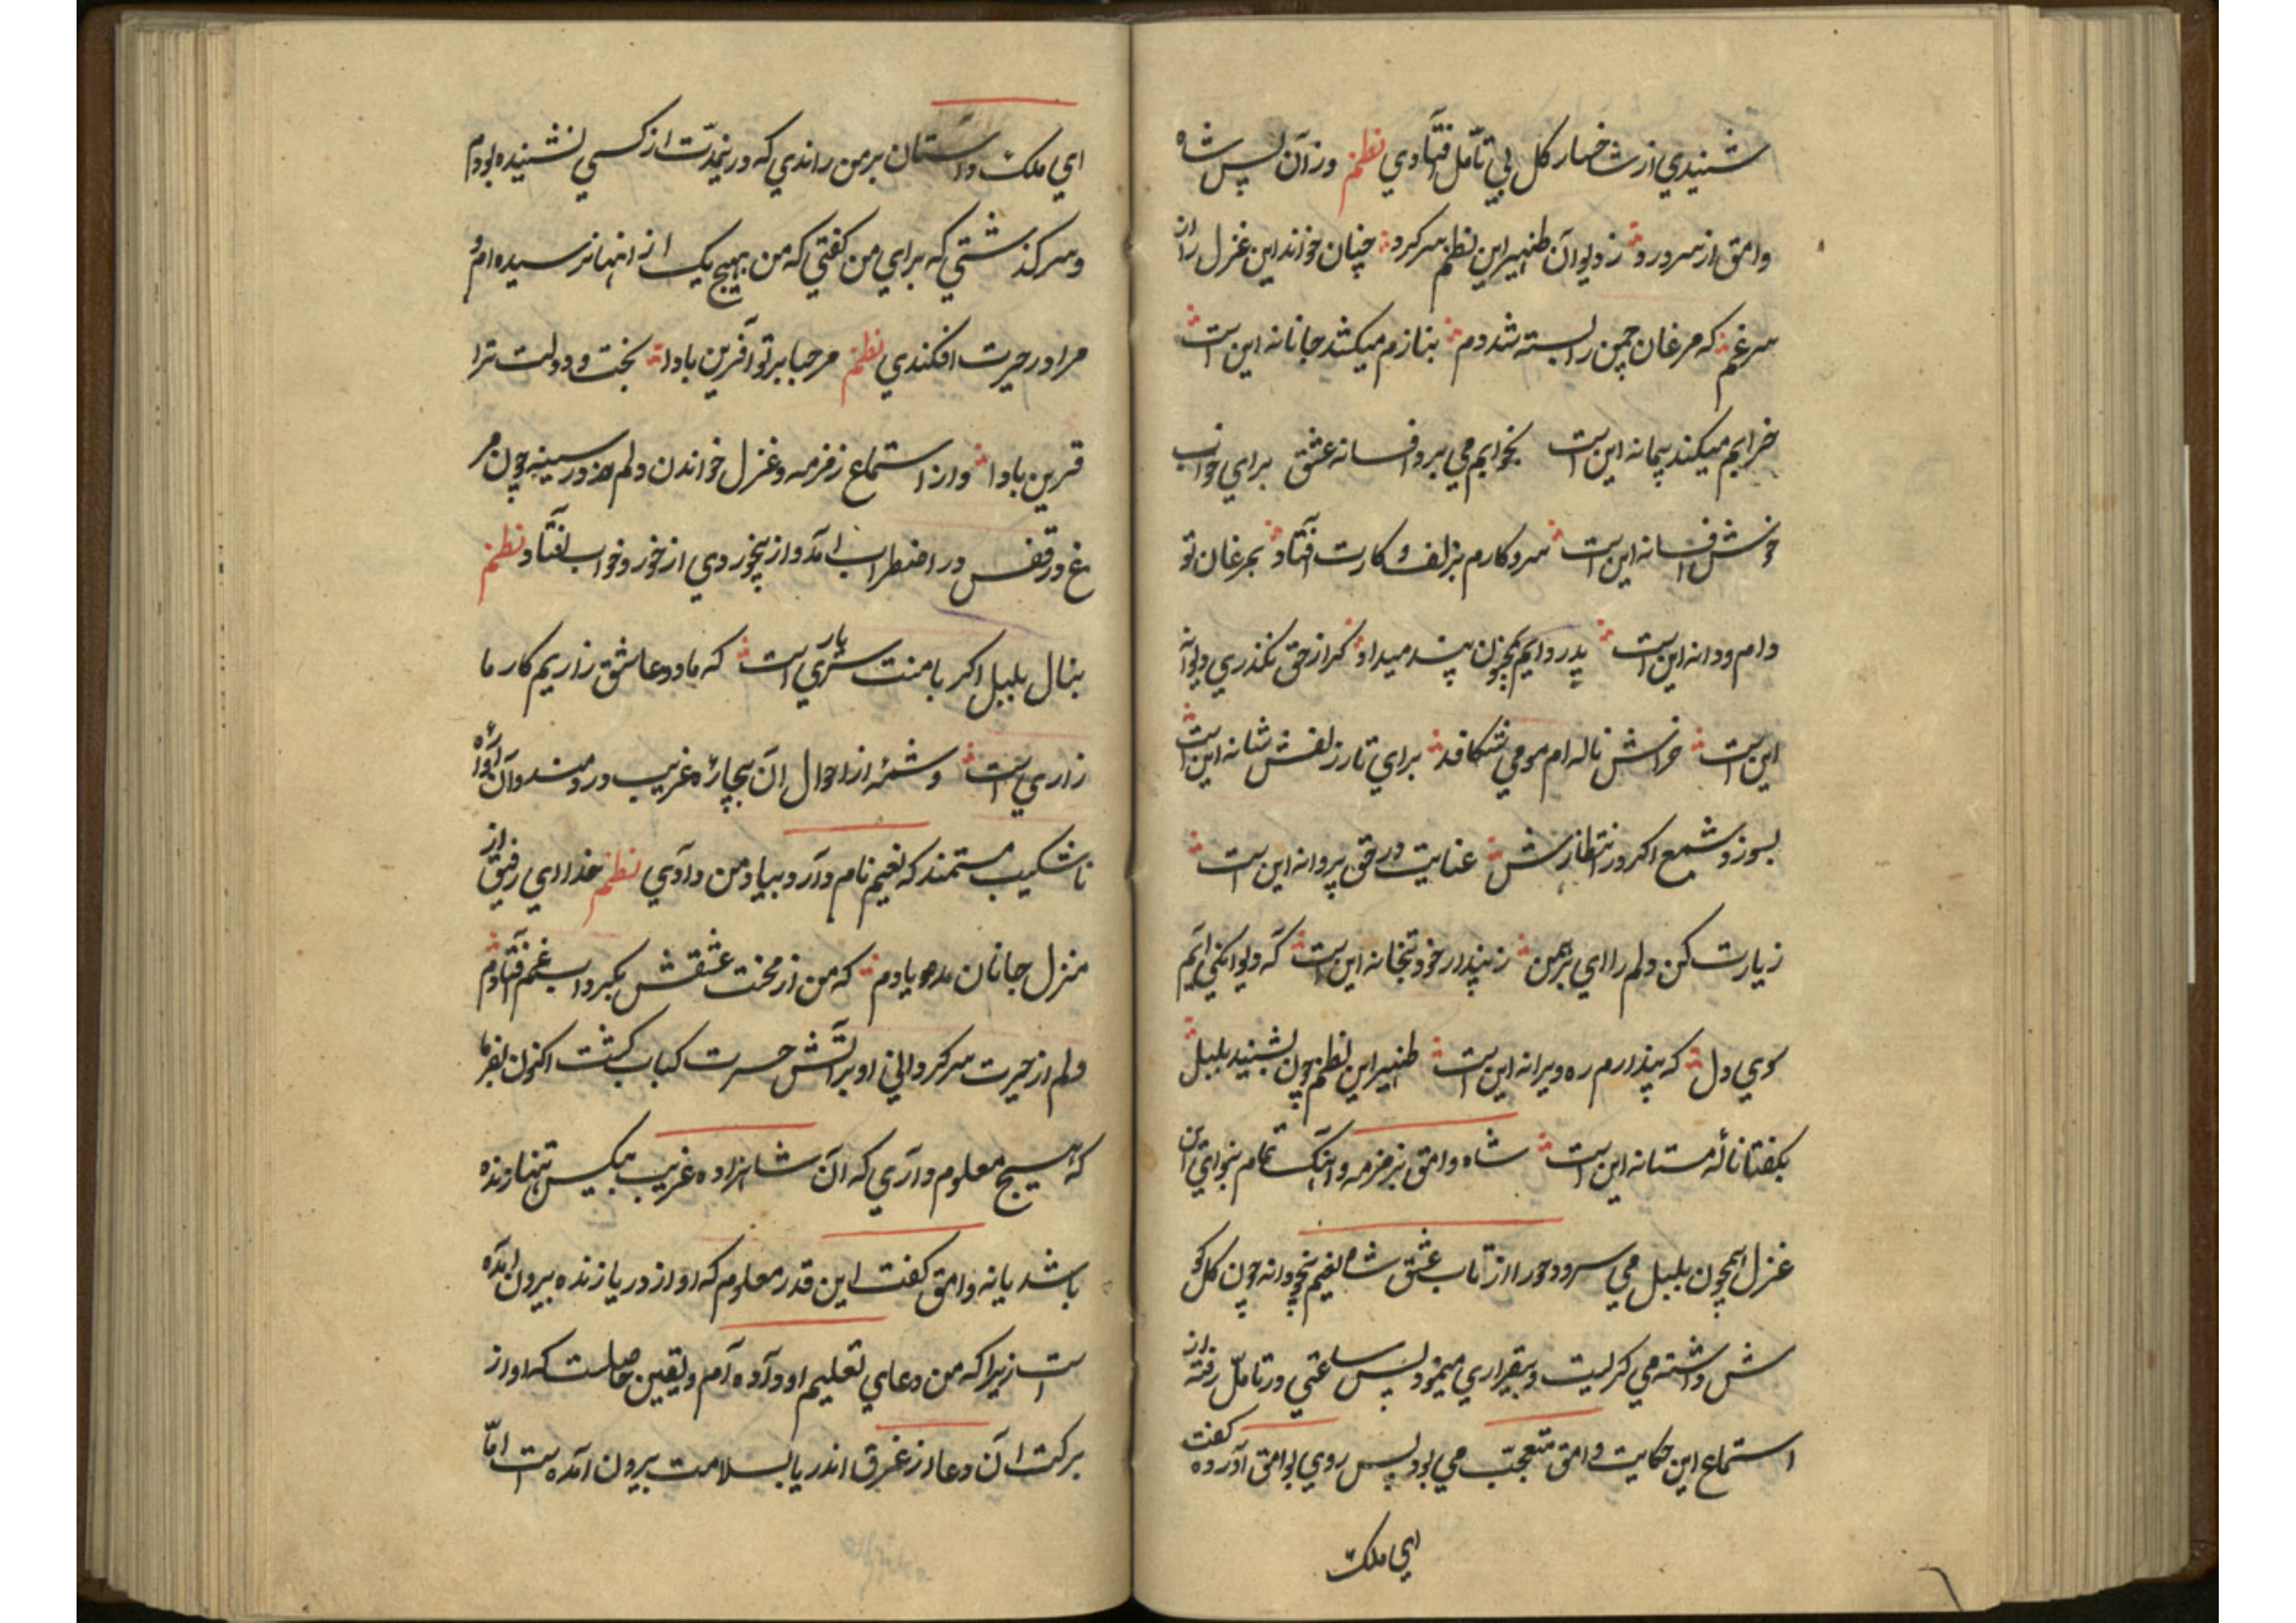 شنیدی از شاخسار کل بی تامل افتادی نظم وزان پس شاه
وامق از سر درد ز دیوان ظهیر این نظم سر کرد چنان خواند این غزل را از
سر غم که مرغان چمن را بسته شد دم بنازم میکشد جانانه این است
خرابم میکند پیمانه این است بخوابم می برد افسانه عشق برای خواب
خوش افسانه این است سر و کارم بزلف و کارت افتاد بمرغان تو
دام و دانه این است پدر دایم بمجنون پند میداد کز حق نکذری دیوانه
این است خراش ناله ام مو می شکافد برای تار زلفش شانه این است
بسوزد شمع اکر در انتظارش عنایت در حق پروانه این است
زیارت کن دلم را ای برهمن ز پندار خود بتخانه این است که دیوانکی ایم
کوی دل که پندارم ره ویرانه این است ظهیر این نظم چون بشنید بلبل
بکفتا نالهٔ مستانه این است شاه وامق بزمزمه و اهنک تمام بنوای این
غزل همچون بلبل می سرود حورا از تاب عشق شاه نعیم بیخودانه چون کل کو
ش داشته می کریست و بیقراری مینمود پس ساعتی در تامل رفته از
استماع این حکایت وامق متعجب می بود پس روی بوامق آورده کفت
ای ملک
ای ملک داستان بر من راندی که درینمدت از کسی نشنیده بودم
و سرکذشتی که برای من کفتی که من بهیچ یک از انها نرسیده ام و
مرا در حیرت افکندی نظم مرحبا بر تو آفرین بادا بخت و دولت ترا
قرین بادا و از استماع زمزمه و غزل خواندن دلم در سینه چون مر
غ در قفس در اضطراب امد و از بیخودی از خور و خواب افتاد نظم
بنال بلبل اکر با منت سر یاری است که ما دو عاشق زاریم کار ما
زاری است و شمهٔ از احوال ان بیچارهٔ غریب دردمند و آن آوارهٔ
ناشکیب مستمند که نعیم نام دارد بیاد من دادی نظم خدا را ای رفیق از
منزل جانان مده یادم که من از محنت عشقش بکرداب غم افتادم
دلم از حیرت سرکردانی او بر آتش حسرت کباب کشت اکنون بفرما
که هیچ معلوم داری که آن شاهزاده غریب بیکس تنها زنده
باشد یا نه وامق کفت این قدر معلوم که او از دریا زنده بیرون امده
است زیرا که من دعای تعلیم او داده ام و یقین حاصلست که او از
برکت ان دعا از غرق اندریا بسلامت بیرون آمده است اما